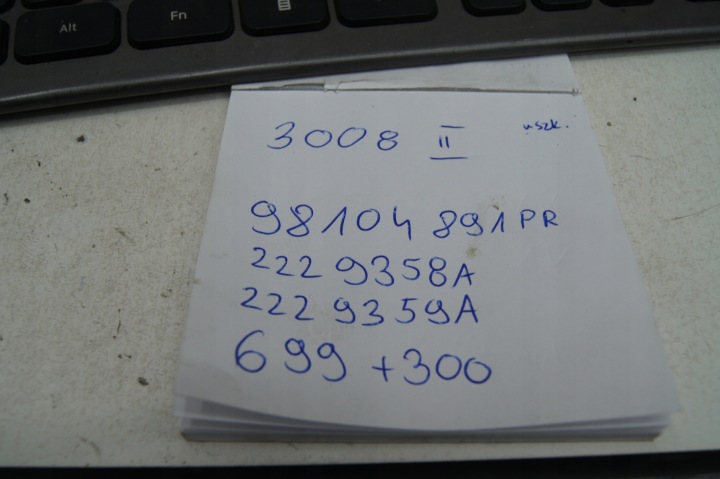 Alt Fn
3008 II uszk.
98104 891PR
222 9358A
222 9359A
699 +300